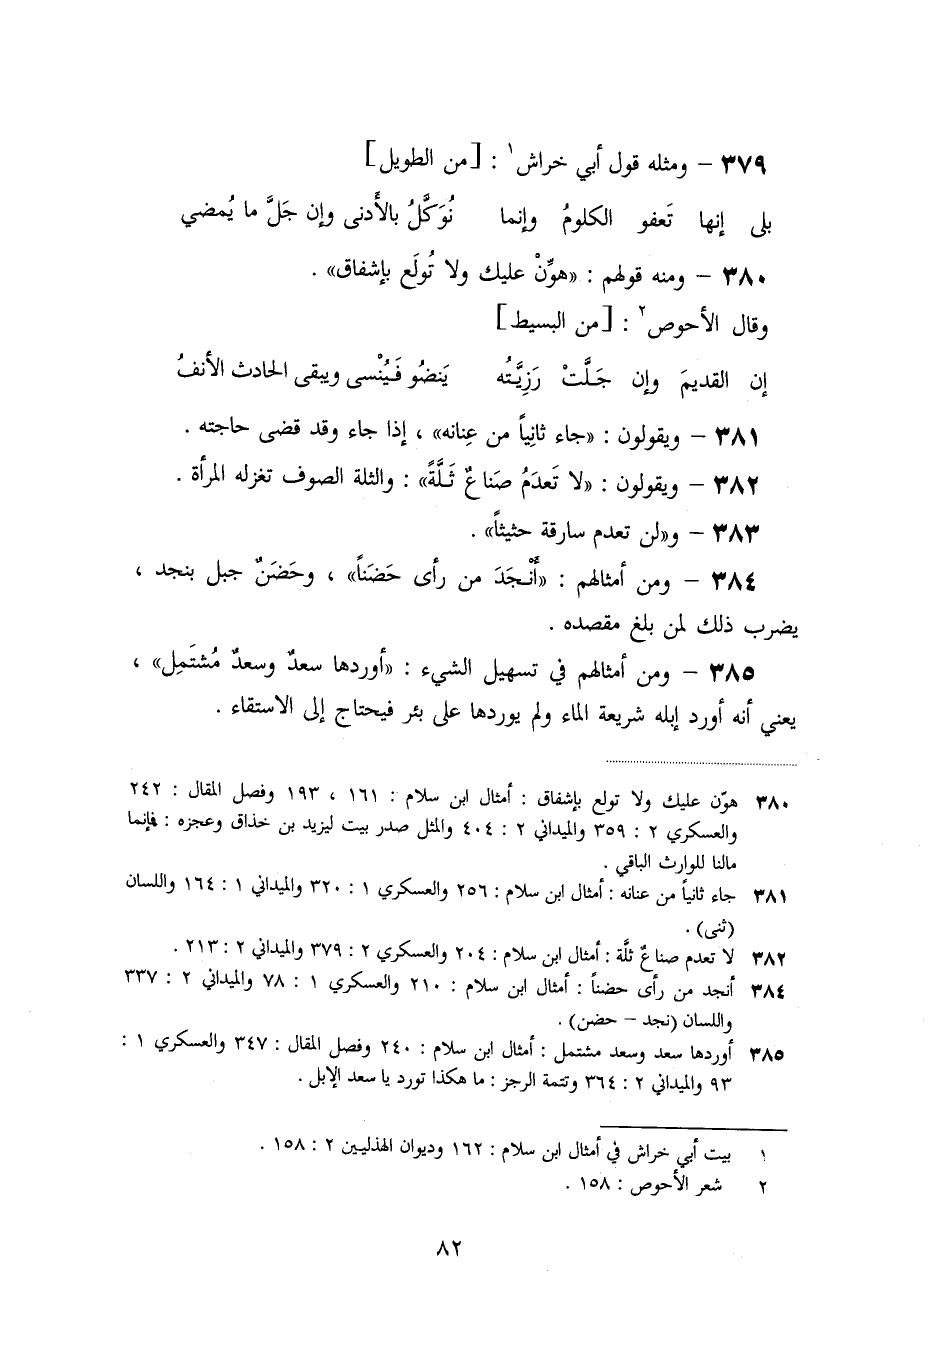 ٣٧٩ – ومثله قول أبي خراش١ : [من الطويل]
بلى إنها تَعفو الكلومُ وإنما نُوَكَّلُ بالأَدنى وإن جَلَّ ما يُمضي
٣٨٠ – ومنه قولهم : «هوِّنْ عليك ولا تُولَع بإشفاق» .
وقال الأحوص٢ : [من البسيط]
إن القديمَ وإن جَلَّتْ رَزِيَّتُه يَنضُو فَيُنْسى ويبقى الحادث الأنفُ
٣٨١ – ويقولون : «جاء ثانِياً من عِنانه» ، إذا جاء وقد قضى حاجته .
٣٨٢ – ويقولون : «لا تَعدَمُ صَناعٌ ثَلَّةً» : والثلة الصوف تغزله المرأة .
٣٨٣ – و«لن تعدم سارقة حثيثاً» .
٣٨٤ – ومن أمثالهم : «أَنْجَدَ من رأى حَضَناً» ، وحَضَنٌ جبل بنجد ،
يضرب ذلك لمن بلغ مقصده .
٣٨٥ – ومن أمثالهم في تسهيل الشيء : «أوردها سعدٌ وسعدٌ مُشتَمِل» ،
يعني أنه أورد إبله شريعة الماء ولم يوردها على بئر فيحتاج إلى الاستقاء .
٣٨٠ هوّن عليك ولا تولع بإشفاق : أمثال ابن سلام : ١٦١ ، ١٩٣ وفصل المقال : ٢٤٢
والعسكري ٢ : ٣٥٩ والميداني ٢ : ٤٠٤ والمثل صدر بيت ليزيد بن خذاق وعجزه : فإنما
مالنا للوارث الباقي .
٣٨١ جاء ثانياً من عنانه : أمثال ابن سلام : ٢٥٦ والعسكري ١ : ٣٢٠ والميداني ١ : ١٦٤ واللسان
(ثنى) .
٣٨٢ لا تعدم صناعٌ ثلَّة : أمثال ابن سلام : ٢٠٤ والعسكري ٢ : ٣٧٩ والميداني ٢ : ٢١٣ .
٣٨٤ أنجد من رأى حضناً : أمثال ابن سلام : ٢١٠ والعسكري ١ : ٧٨ والميداني ٢ : ٣٣٧
واللسان (نجد – حضن) .
٣٨٥ أوردها سعد وسعد مشتمل : أمثال ابن سلام : ٢٤٠ وفصل المقال : ٣٤٧ والعسكري ١ :
٩٣ والميداني ٢ : ٣٦٤ وتتمة الرجز : ما هكذا تورد يا سعد الإبل .
١ بيت أبي خراش في أمثال ابن سلام : ١٦٢ وديوان الهذليين ٢ : ١٥٨ .
٢ شعر الأحوص : ١٥٨ .
٨٢